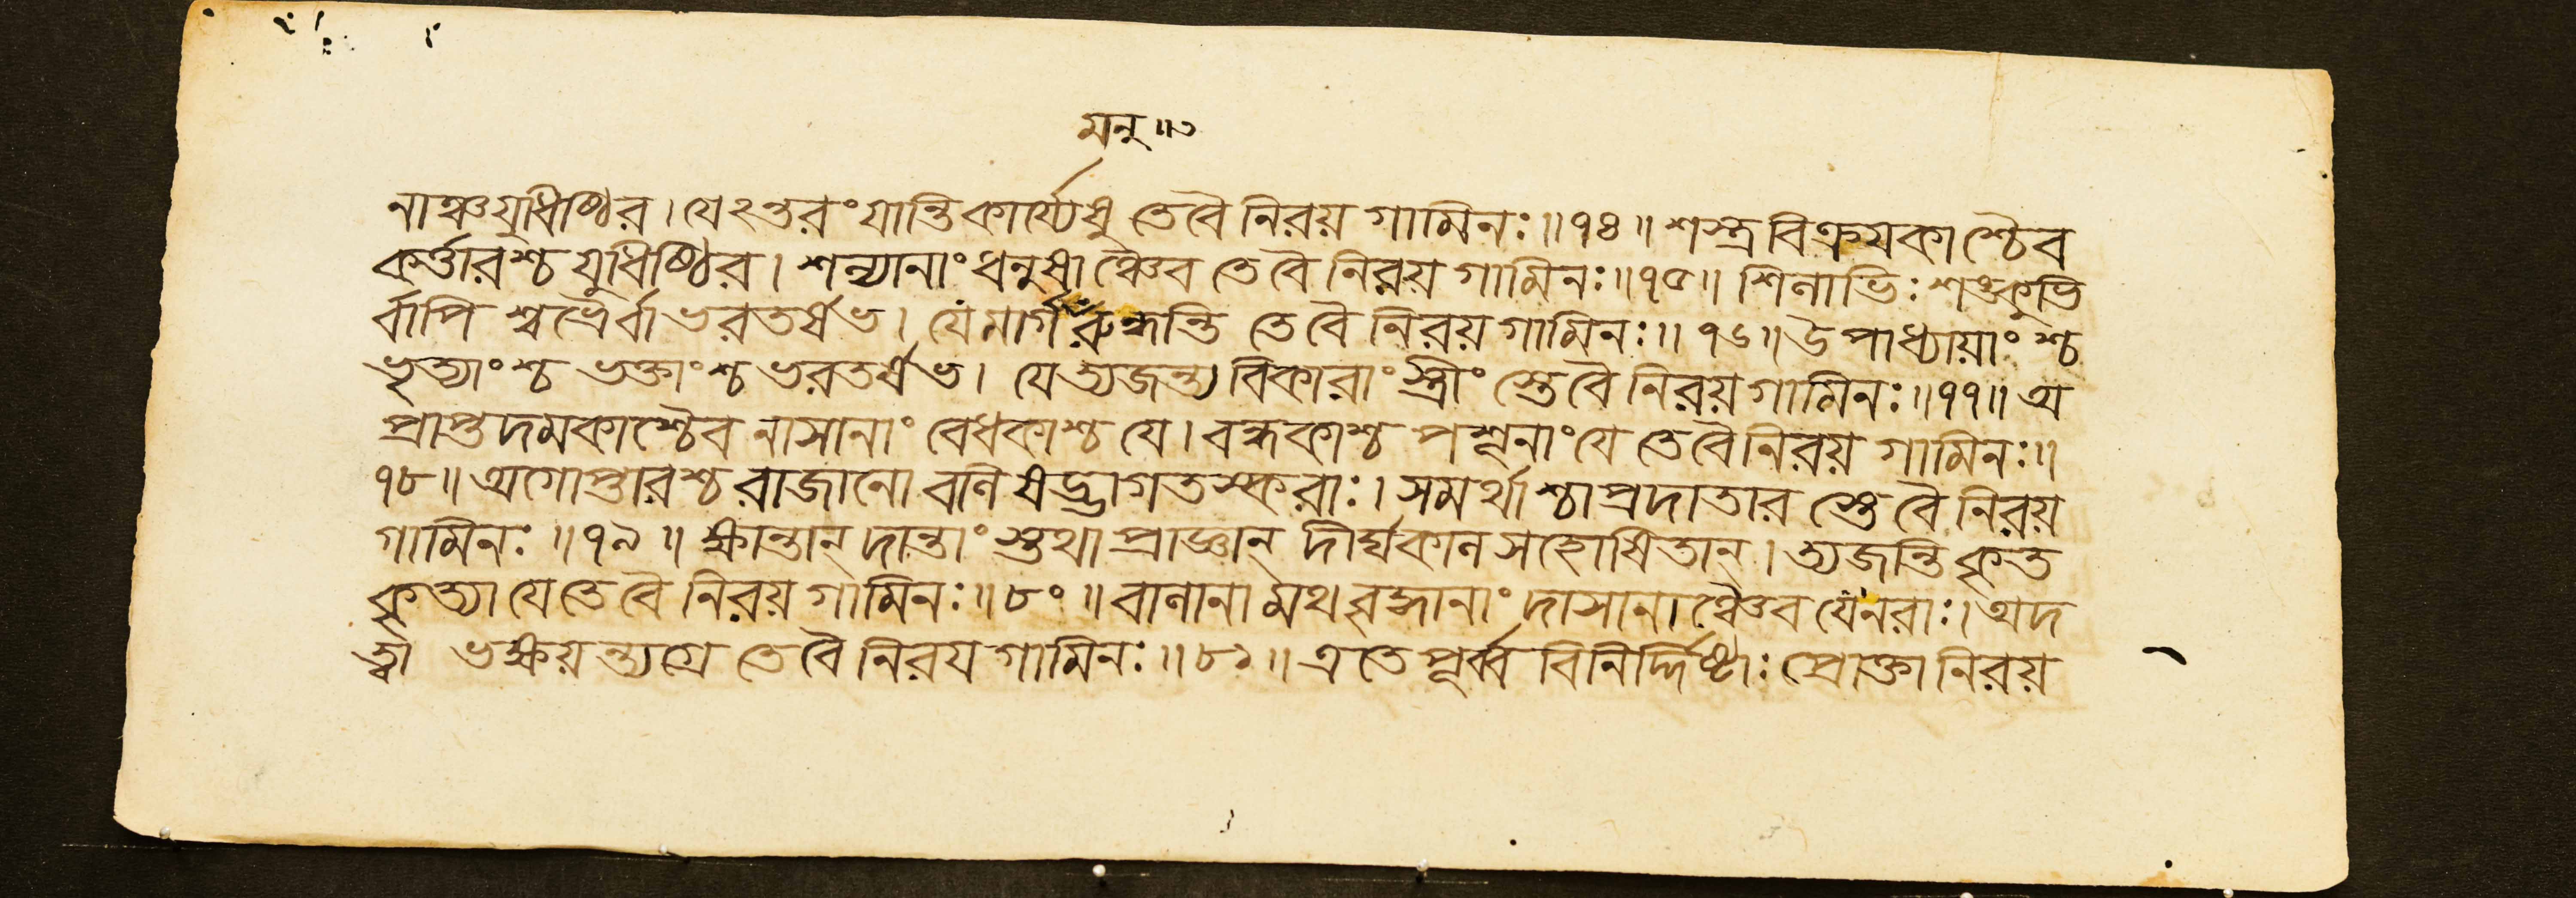 মনু ॥৩
নাঞ্চযুধিষ্ঠির । যেঽন্তরং যান্তিকার্য্যেষু তেবৈ নিরয় গামিনঃ ॥ ৭৪ ॥ শস্ত্র বিক্রয়কাশ্চৈব
কর্ত্তারশ্চ যুধিষ্ঠির । শল্যানাং ধনুষাঞ্চৈব তেবৈ নিরয় গামিনঃ ॥ ৭৫ ॥ শিলাভিঃ শঙ্কুভি
র্বাপি শ্বভ্রৈর্বা ভরতর্ষভ । যে মার্গং রুন্ধন্তি তেবৈ নিরয় গামিনঃ ॥ ৭৬ ॥ উপাধ্যায়াংশ্চ
ভৃত্যাংশ্চ ভক্তাংশ্চ ভরতর্ষভ । যে ত্যজন্ত্য বিকারাং স্ত্রীং স্তেবৈ নিরয় গামিনঃ ॥ ৭৭ ॥ অ
প্রাপ্তদমকাশ্চৈব নাসানাং বেধকাশ্চ যে । বন্ধকাশ্চ পশূনাং যে তেবৈ নিরয় গামিনঃ ॥
৭৮ ॥ অগোপ্তারশ্চ রাজানো বলি ষদ্ভাগতস্করাঃ । সমর্থাশ্চাপ্রদাতার স্তে বৈ নিরয়
গামিনঃ ॥ ৭৯ ॥ ক্ষান্তান্ দান্তাং স্তথা প্রাজ্ঞান্ দীর্ঘকাল সহোষিতান্ । ত্যজন্তি কৃত
কৃত্যা যে তেবৈ নিরয় গামিনঃ ॥ ৮০ ॥ বালানা মথ বৃদ্ধানাং দাসানাঞ্চৈব যে নরাঃ । অদ
ত্ত্বা ভক্ষয়ন্ত্যগ্রে তেবৈ নিরয গামিনঃ ॥ ৮১ ॥ এতে পূর্ব্ব বিনির্দ্দিষ্টাঃ প্রোক্তা নিরয়